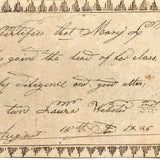 Certifies that Mary L
gains the head of he class
by diligence and good atten
tion Laura Webster
August 18th 1835